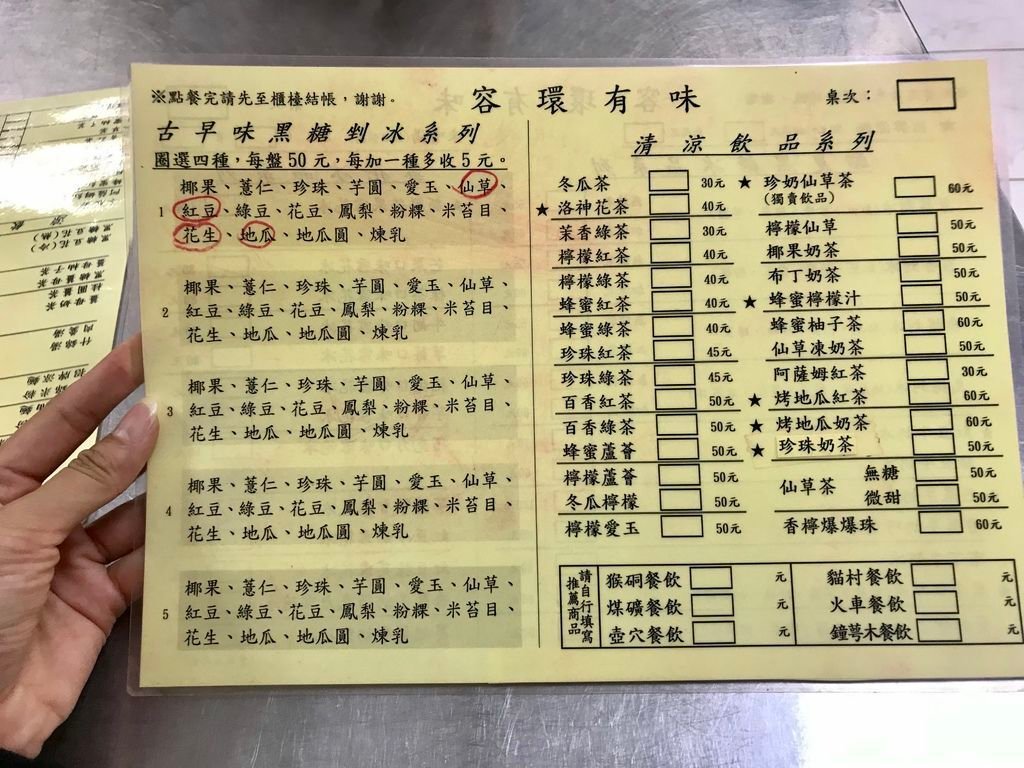 ※點餐完請先至櫃檯結帳，謝謝。
容環有味
桌次：
古早味黑糖剉冰系列
圈選四種，每盤50元，每加一種多收5元。
1
椰果、薏仁、珍珠、芋圓、愛玉、仙草、
紅豆、綠豆、花豆、鳳梨、粉粿、米苔目、
花生、地瓜、地瓜圓、煉乳
2
椰果、薏仁、珍珠、芋圓、愛玉、仙草、
紅豆、綠豆、花豆、鳳梨、粉粿、米苔目、
花生、地瓜、地瓜圓、煉乳
3
椰果、薏仁、珍珠、芋圓、愛玉、仙草、
紅豆、綠豆、花豆、鳳梨、粉粿、米苔目、
花生、地瓜、地瓜圓、煉乳
4
椰果、薏仁、珍珠、芋圓、愛玉、仙草、
紅豆、綠豆、花豆、鳳梨、粉粿、米苔目、
花生、地瓜、地瓜圓、煉乳
5
椰果、薏仁、珍珠、芋圓、愛玉、仙草、
紅豆、綠豆、花豆、鳳梨、粉粿、米苔目、
花生、地瓜、地瓜圓、煉乳
清涼飲品系列
冬瓜茶 30元
★ 洛神花茶 40元
茉香綠茶 30元
檸檬紅茶 40元
檸檬綠茶 40元
蜂蜜紅茶 40元
蜂蜜綠茶 40元
珍珠紅茶 45元
珍珠綠茶 45元
百香紅茶 50元
百香綠茶 50元
蜂蜜蘆薈 50元
檸檬蘆薈 50元
冬瓜檸檬 50元
檸檬愛玉 50元
★ 珍奶仙草茶 60元
(獨賣飲品)
檸檬仙草 50元
椰果奶茶 50元
布丁奶茶 50元
★ 蜂蜜檸檬汁 50元
蜂蜜柚子茶 60元
仙草凍奶茶 50元
阿薩姆紅茶 30元
★ 烤地瓜紅茶 60元
★ 烤地瓜奶茶 60元
★ 珍珠奶茶 50元
仙草茶 無糖 50元
微甜 50元
香檸爆爆珠 60元
請自行填寫
推薦商品
猴硐餐飲 元 貓村餐飲 元
煤礦餐飲 元 火車餐飲 元
壺穴餐飲 元 鐘萼木餐飲 元
黑糖豆花(冷)
黑糖豆花(熱)
薑母柚子茶
黑糖薑母茶
桂圓薑茶
薑母奶茶
肉羹湯
什錦湯
招牌涼麵